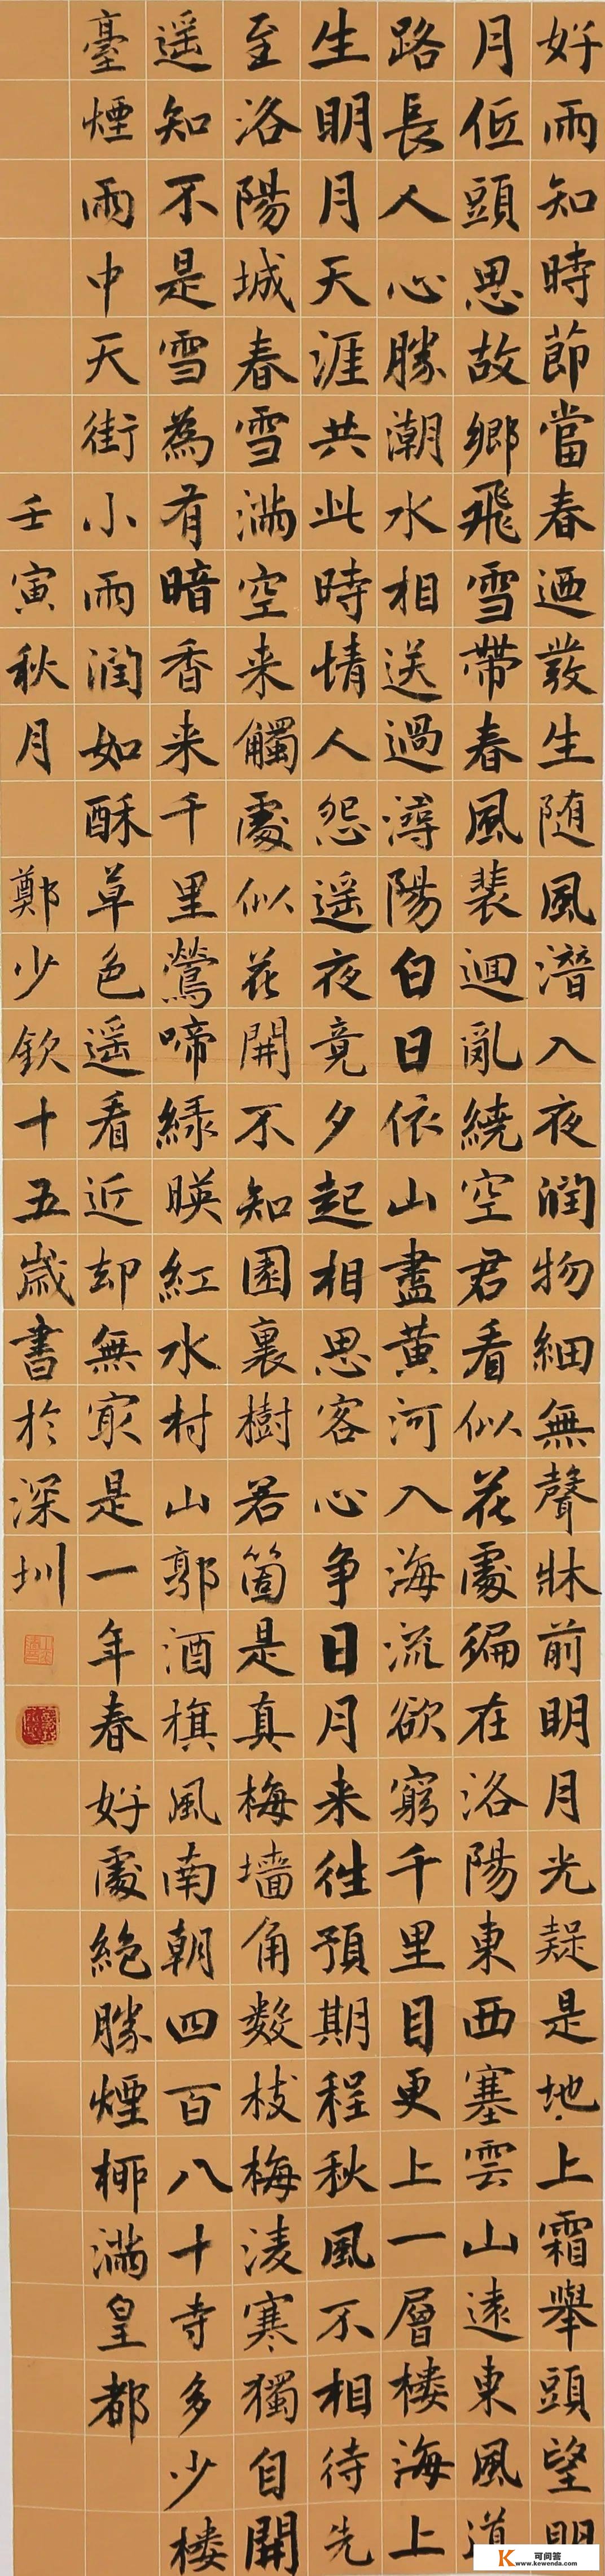 好雨知時節當春迺發生随風潛入夜潤物細無聲牀前明月光疑是地上霜舉頭望明
月低頭思故鄉飛雪帶春風裴迴亂繞空君看似花處徧在洛陽東西塞雲山遠東風道
路長人心勝潮水相送過潯陽白日依山盡黄河入海流欲窮千里目更上一層楼海上
生明月天涯共此時情人怨遥夜竟夕起相思客心争日月来往預期程秋風不相待先
至洛陽城春雪滿空来觸處似花開不知園裏樹若箇是真梅墻角數枝梅淩寒獨自開
遥知不是雪為有暗香来千里鶯啼緑暎紅水村山郭酒旗風南朝四百八十寺多少楼
臺煙雨中天街小雨潤如酥草色遥看近却無寂是一年春好處絶勝煙柳滿皇都
壬寅秋月 鄭少欽十五歲書於深圳
可问答
www.kewenda.com